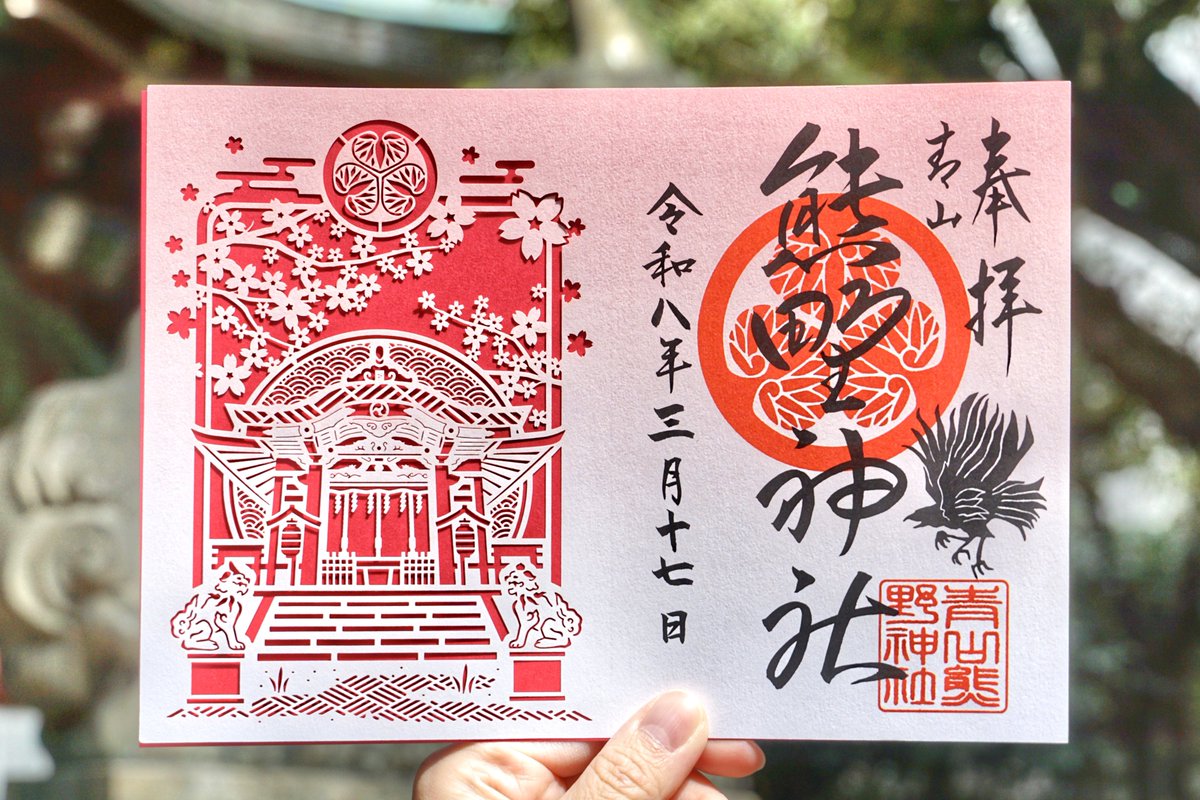 奉拝
青山
熊野神社
令和八年三月十七日
青山熊
野神社